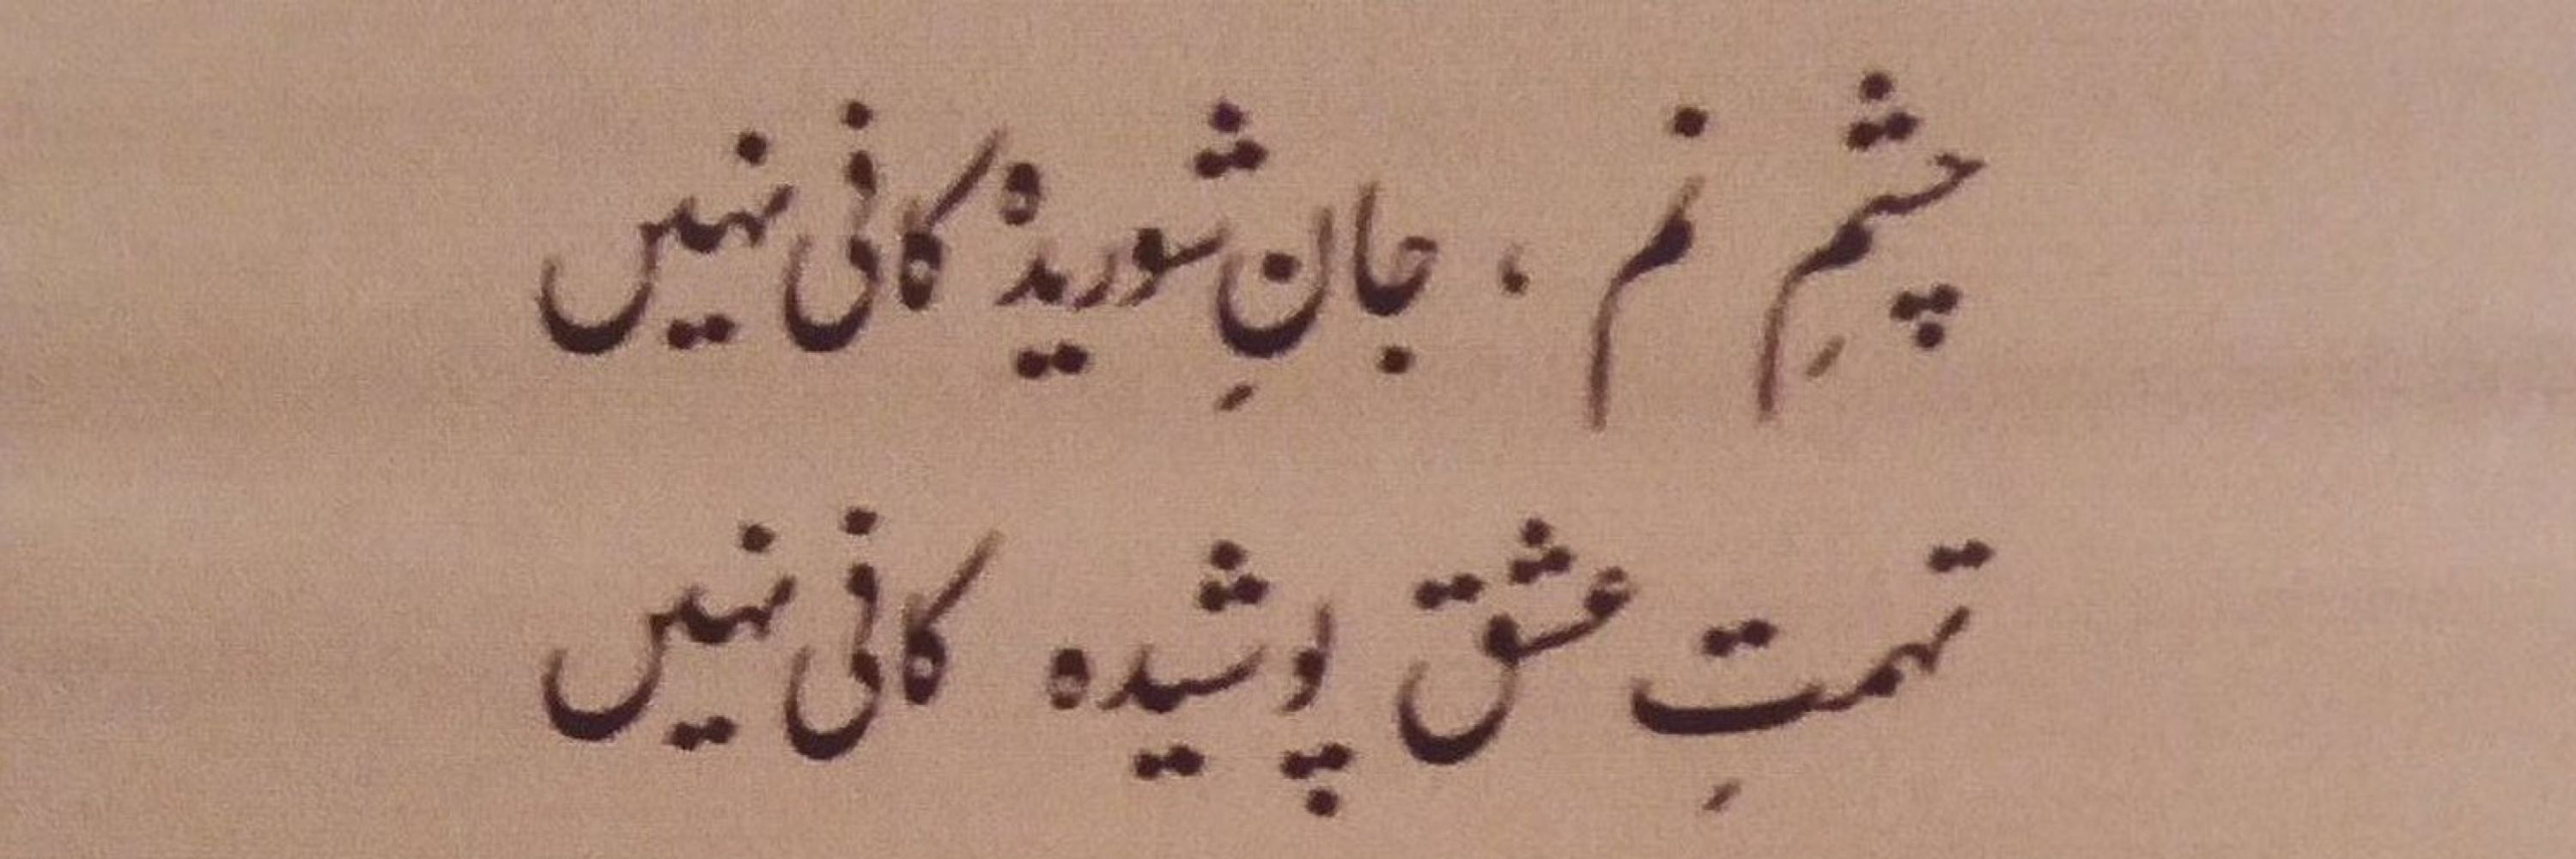 چشمِ نم ، جانِ شوریدہ کافی نہیں
تہمتِ عشق پوشیدہ کافی نہیں